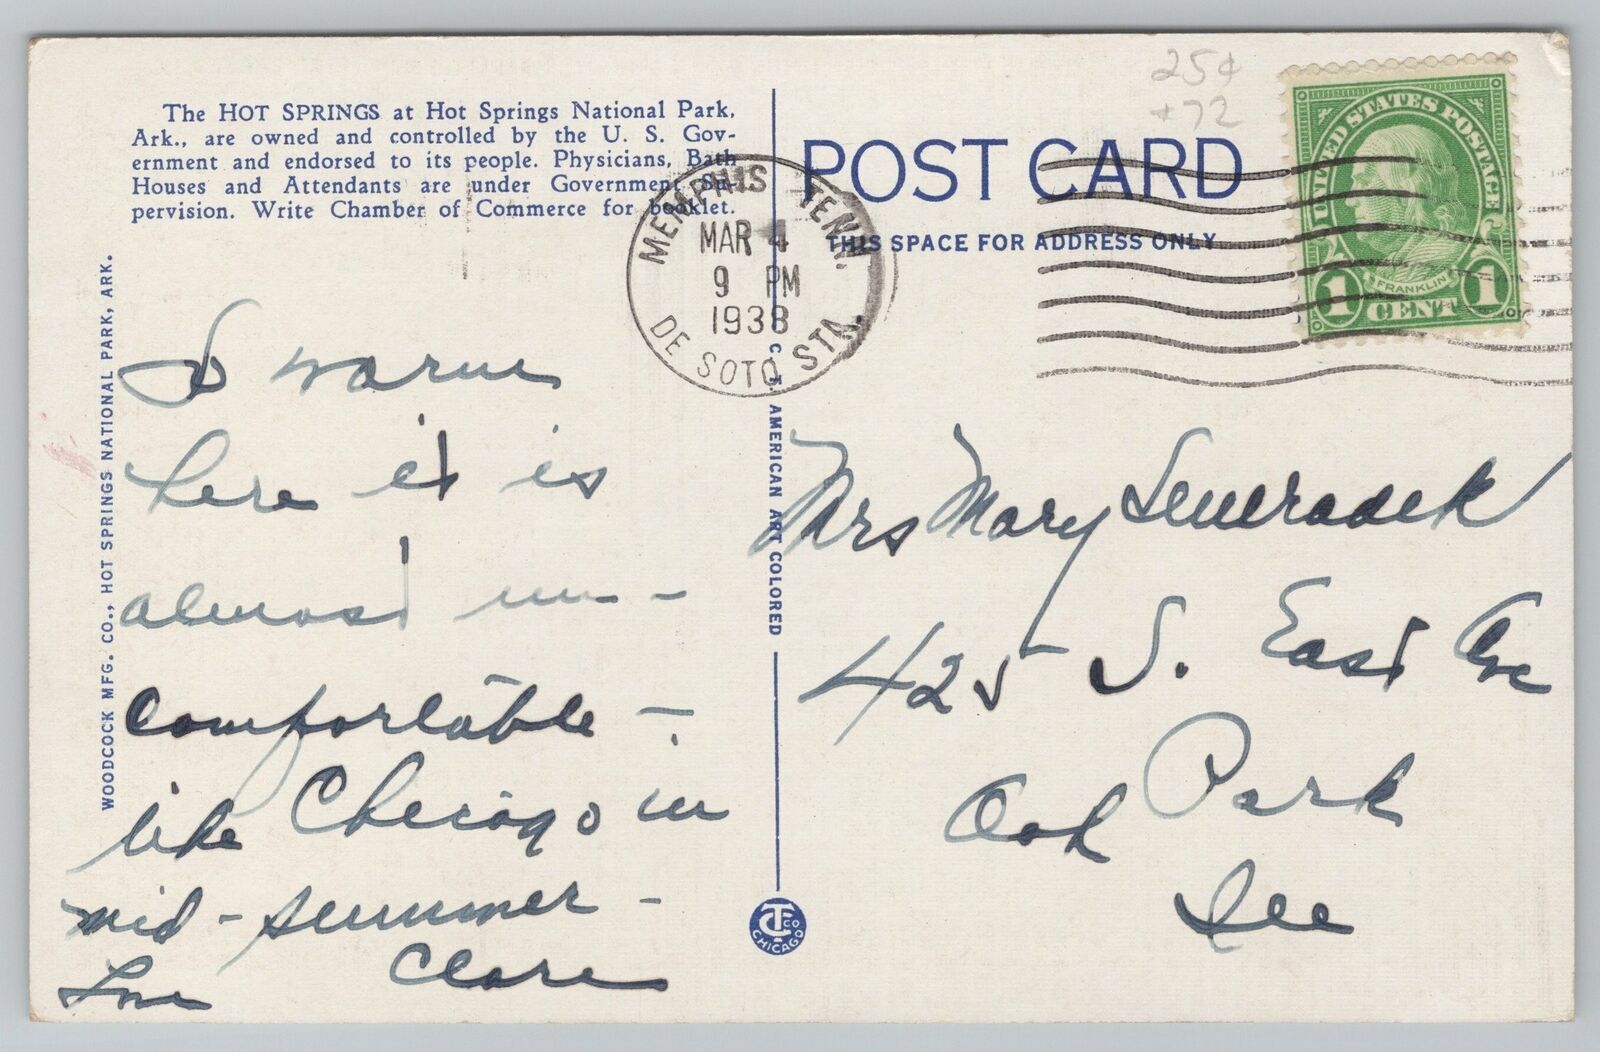 25¢
+72
The HOT SPRINGS at Hot Springs National Park,
Ark., are owned and controlled by the U. S. Gov-
ernment and endorsed to its people. Physicians, Bath
Houses and Attendants are under Government Su-
pervision. Write Chamber of Commerce for booklet.
POST CARD
THIS SPACE FOR ADDRESS ONLY
UNITED STATES POSTAGE
FRANKLIN
1 CENT 1
MEMPHIS TENN.
MAR 4
9 PM
1938
DE SOTO STA.
WOODCOCK MFG. CO., HOT SPRINGS NATIONAL PARK, ARK.
C. T. AMERICAN ART COLORED
So warm
here it is
almost un-
comfortable —
like Chicago in
mid-summer -
Love Clare
Mrs Mary
425 S. East Ave
Oak Park
Ill
CT CO
CHICAGO